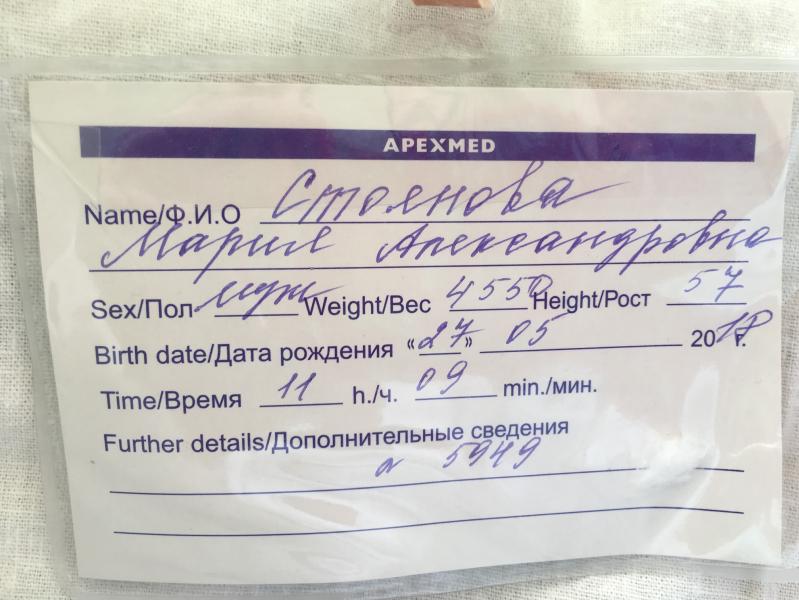 APEXMED
Name/Ф.И.О Стоянова
Мария Александровна
Sex/Пол муж Weight/Вес 4550 Height/Рост 57
Birth date/Дата рождения «27» 05 2018 г.
Time/Время 11 h./ч. 09 min./мин.
Further details/Дополнительные сведения
5949